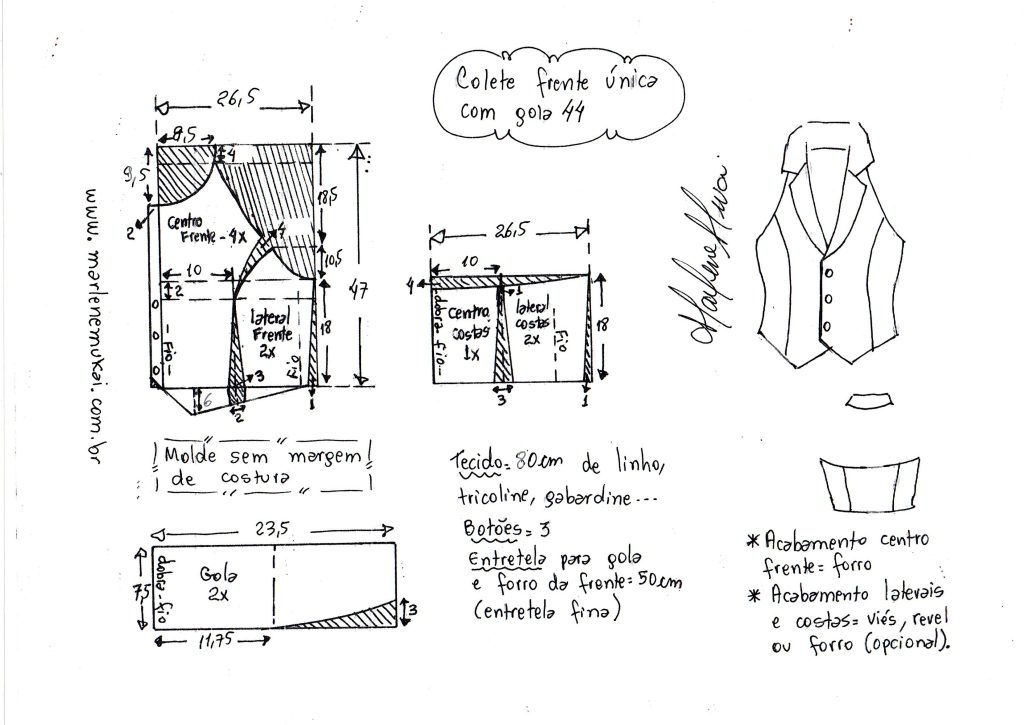 Colete frente única
com gola 44
26,5
9,5
4
9,5
2
Centro
Frente - 4x
4
18,5
10,5
47
10
2
18
lateral
Frente
2x
Fio
Fio
3
6
2
1
www.marlenemukai.com.br
26,5
10
4
1
dobra-fio
Centro
costas
1x
lateral
costas
2x
Fio
18
3
1
Marlene Mukai
Molde sem margem
de costura
23,5
7,5
dobra-fio
Gola
2x
3
11,75
Tecido = 80cm de linho,
tricoline, gabardine...
Botões = 3
Entretela para gola
e forro da frente = 50cm
(entretela fina)
* Acabamento centro
frente = forro
* Acabamento laterais
e costas = viés, revel
ou forro (opcional).